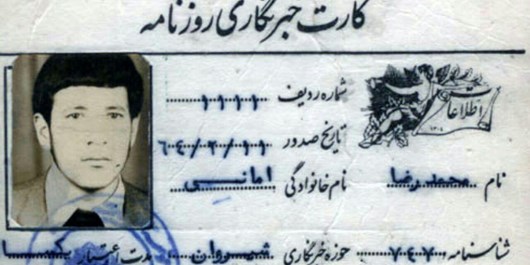 کارت خبرنگاری روزنامه
اطلاعات
شماره ردیف ۱۱۱۱
تاریخ صدور ۶۴/۲/۱۱
نام محمدرضا نام خانوادگی امانی
شناسنامه ۷۴۷ حوزه خبرنگاری شیروان مدت اعتبار یک